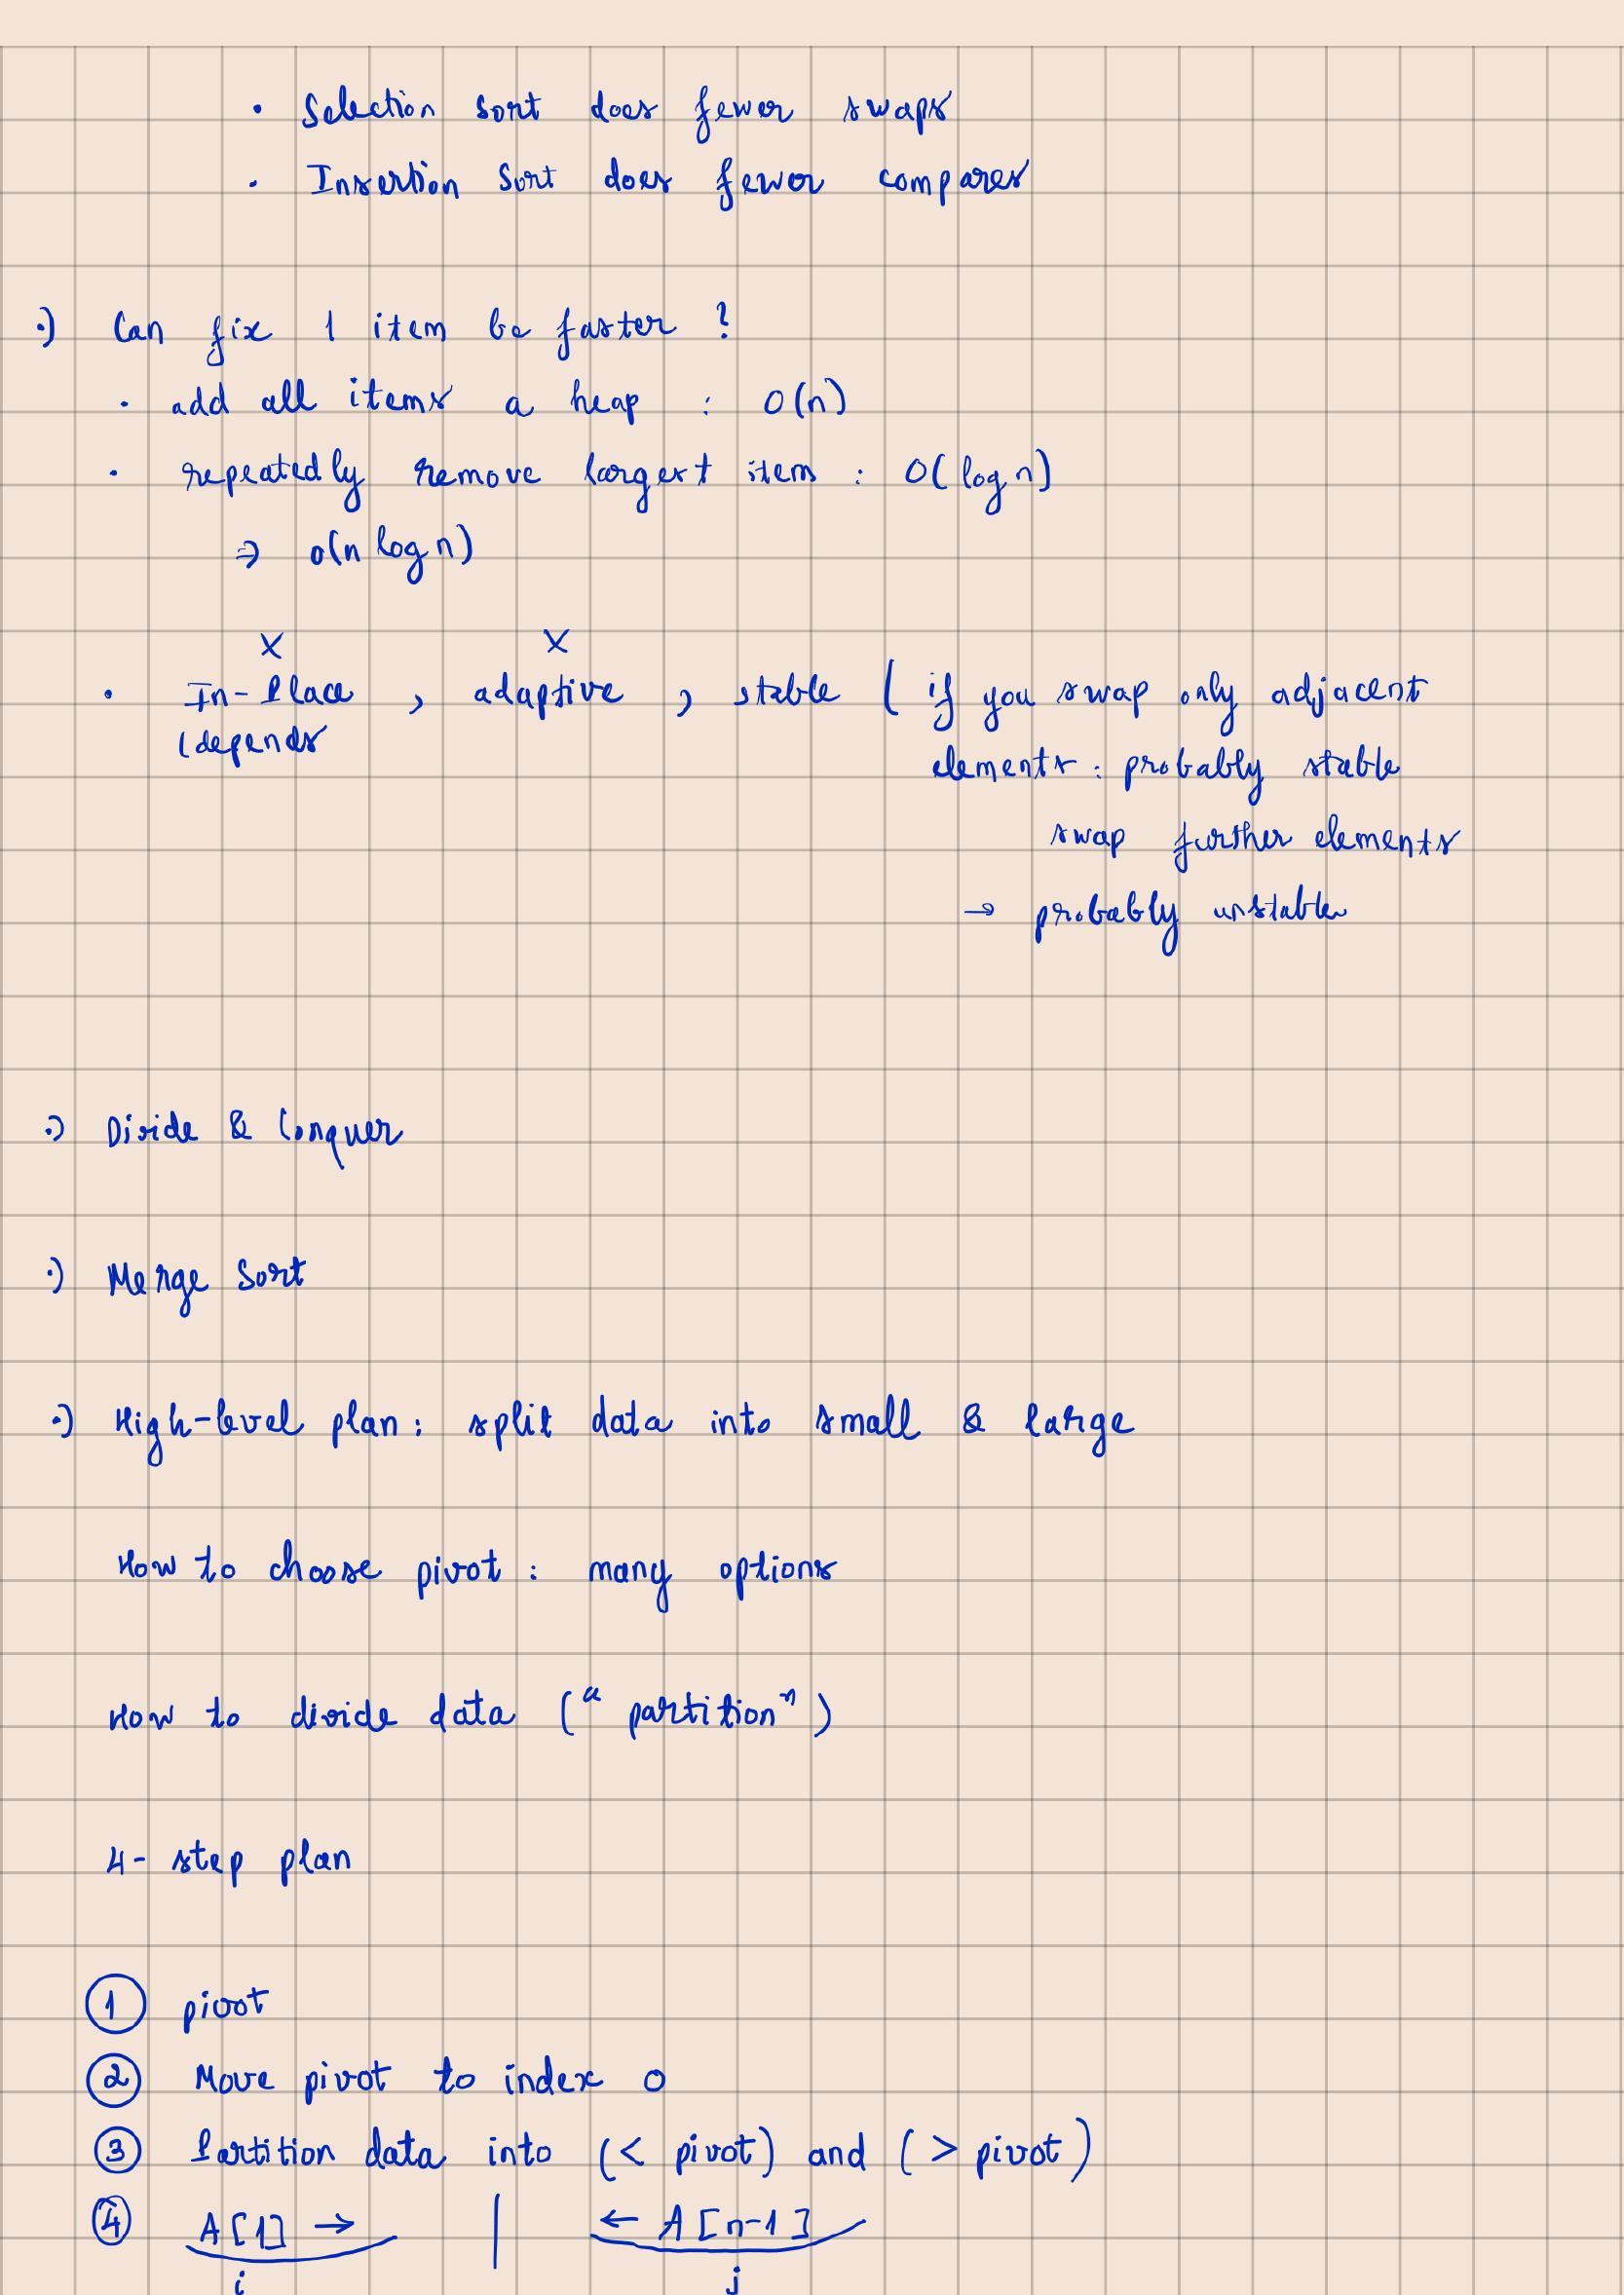 • Selection sort does fewer swaps
• Insertion Sort does fewer compares
·) Can fix 1 item be faster ?
• add all items a heap : O(n)
• repeatedly remove largest item : O(log n)
⇒ O(n log n)
X X
• In-Place , adaptive , stable ( if you swap only adjacent
(depends elements : probably stable
swap further elements
→ probably unstable
·) Divide & Conquer
·) Merge Sort
·) High-level plan : split data into small & large
How to choose pivot : many options
How to divide data (" partition")
4- step plan
① pivot
② Move pivot to index 0
③ Partition data into (< pivot) and (> pivot)
④ A[1] → | ← A[n-1]
i j